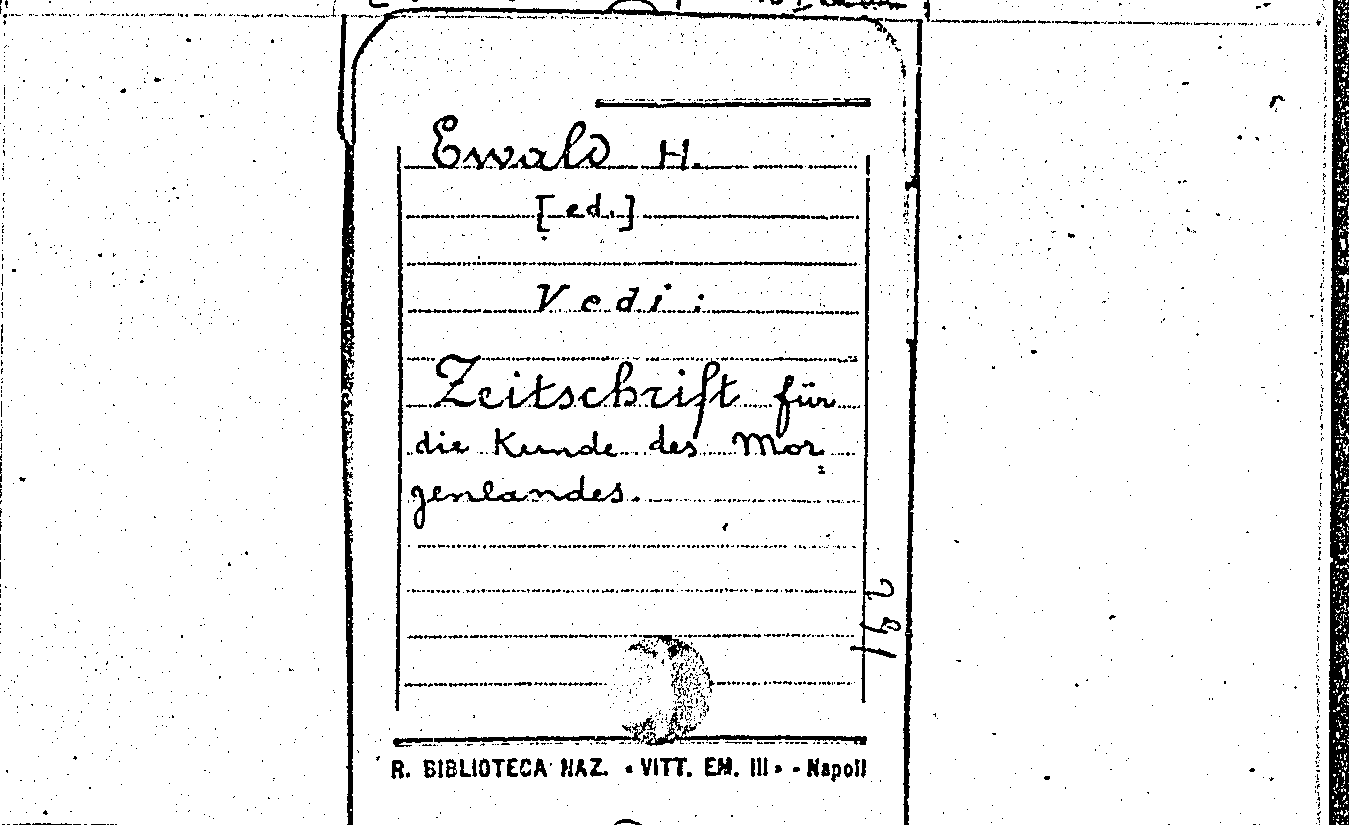 Ewald H.
[ed.]
Vedi :
Zeitschrift für
die Kunde des Mor
genlandes.
R. BIBLIOTECA NAZ. « VITT. EM. III » - Napoli